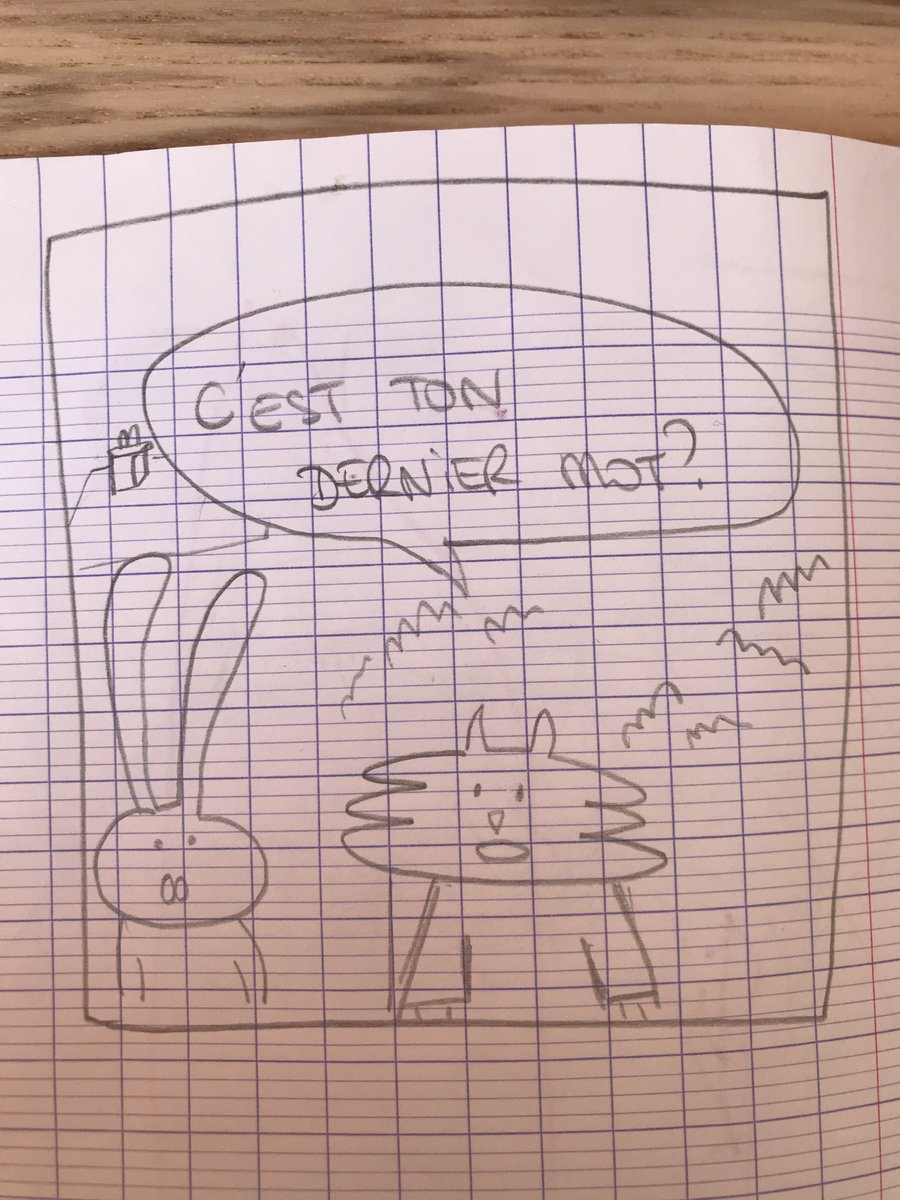 C'EST TON
DERNIER MOT?